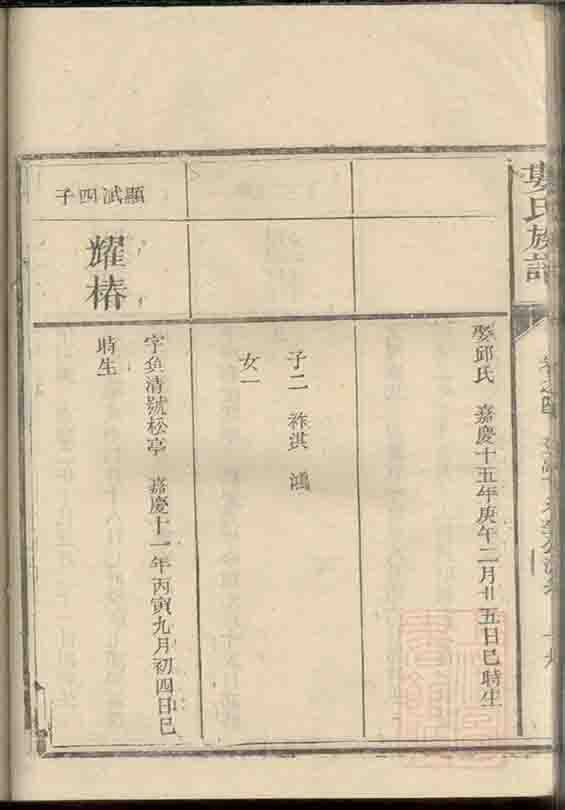 婁氏族譜
娶邱氏 嘉慶十五年庚午二月廿五日巳時生
子二 祚洪 鴻
女一
顯試四子
耀椿
字魚清號松亭 嘉慶十一年丙寅九月初四日巳
時生